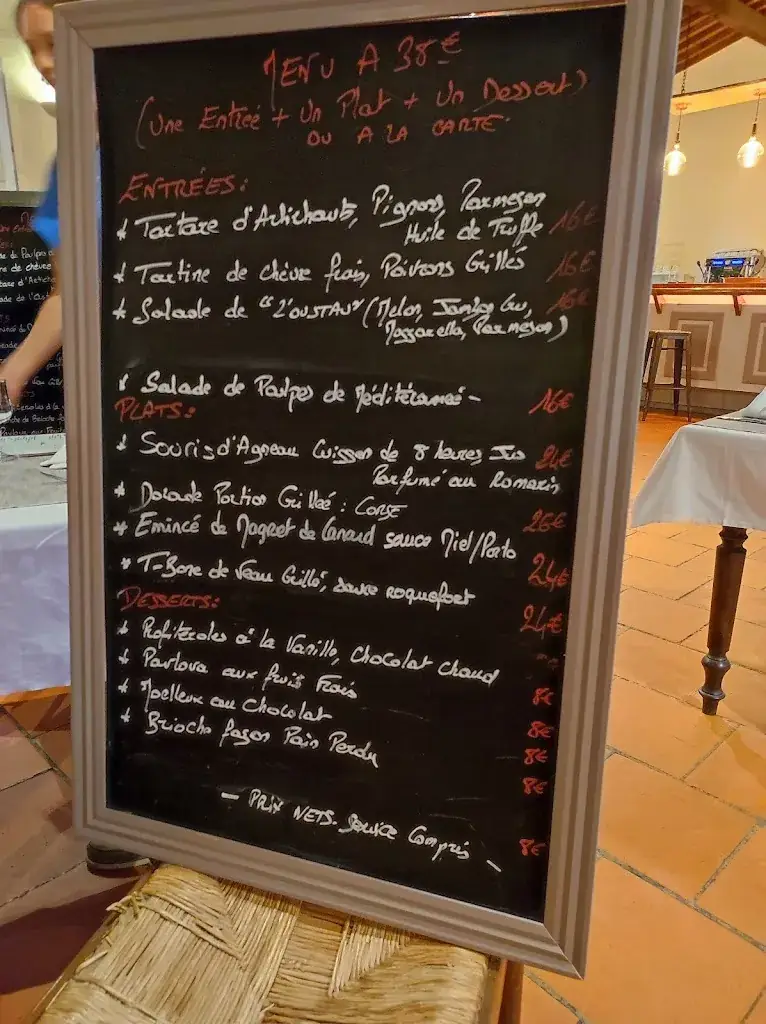 MENU A 38€
(Une Entreé + Un Plat + Un Dessert)
OU A LA CARTE.
ENTRÉES:
* Tartare d'Artichauts, Pignons, Parmesan
Huile de Truffe 16€
* Tartine de chèvre frais, Poivrons Grillés 16€
* Salade de "L'OUSTAU" (Melon, Jambon Cru, 16€
Mozzarella, Parmesan)
* Salade de Poulpes de Méditérranée - 16€
PLATS:
* Souris d'Agneau Cuisson de 8 heures Jus 24€
Parfumé au Romarin
* Dorade Portion Grilleé : CORSE 26€
* Emincé de Magret de Canard sauce Miel/Porto 24€
* T-Bone de Veau Grillé, sauce roquefort 24€
DESSERTS:
* Profiteroles à la Vanille, Chocolat Chaud 8€
* Pavlova aux fruits Frais 8€
* Moelleux au Chocolat 8€
* Brioche façon Pain Perdu 8€
- PRIX NETS. Service Compris - 8€